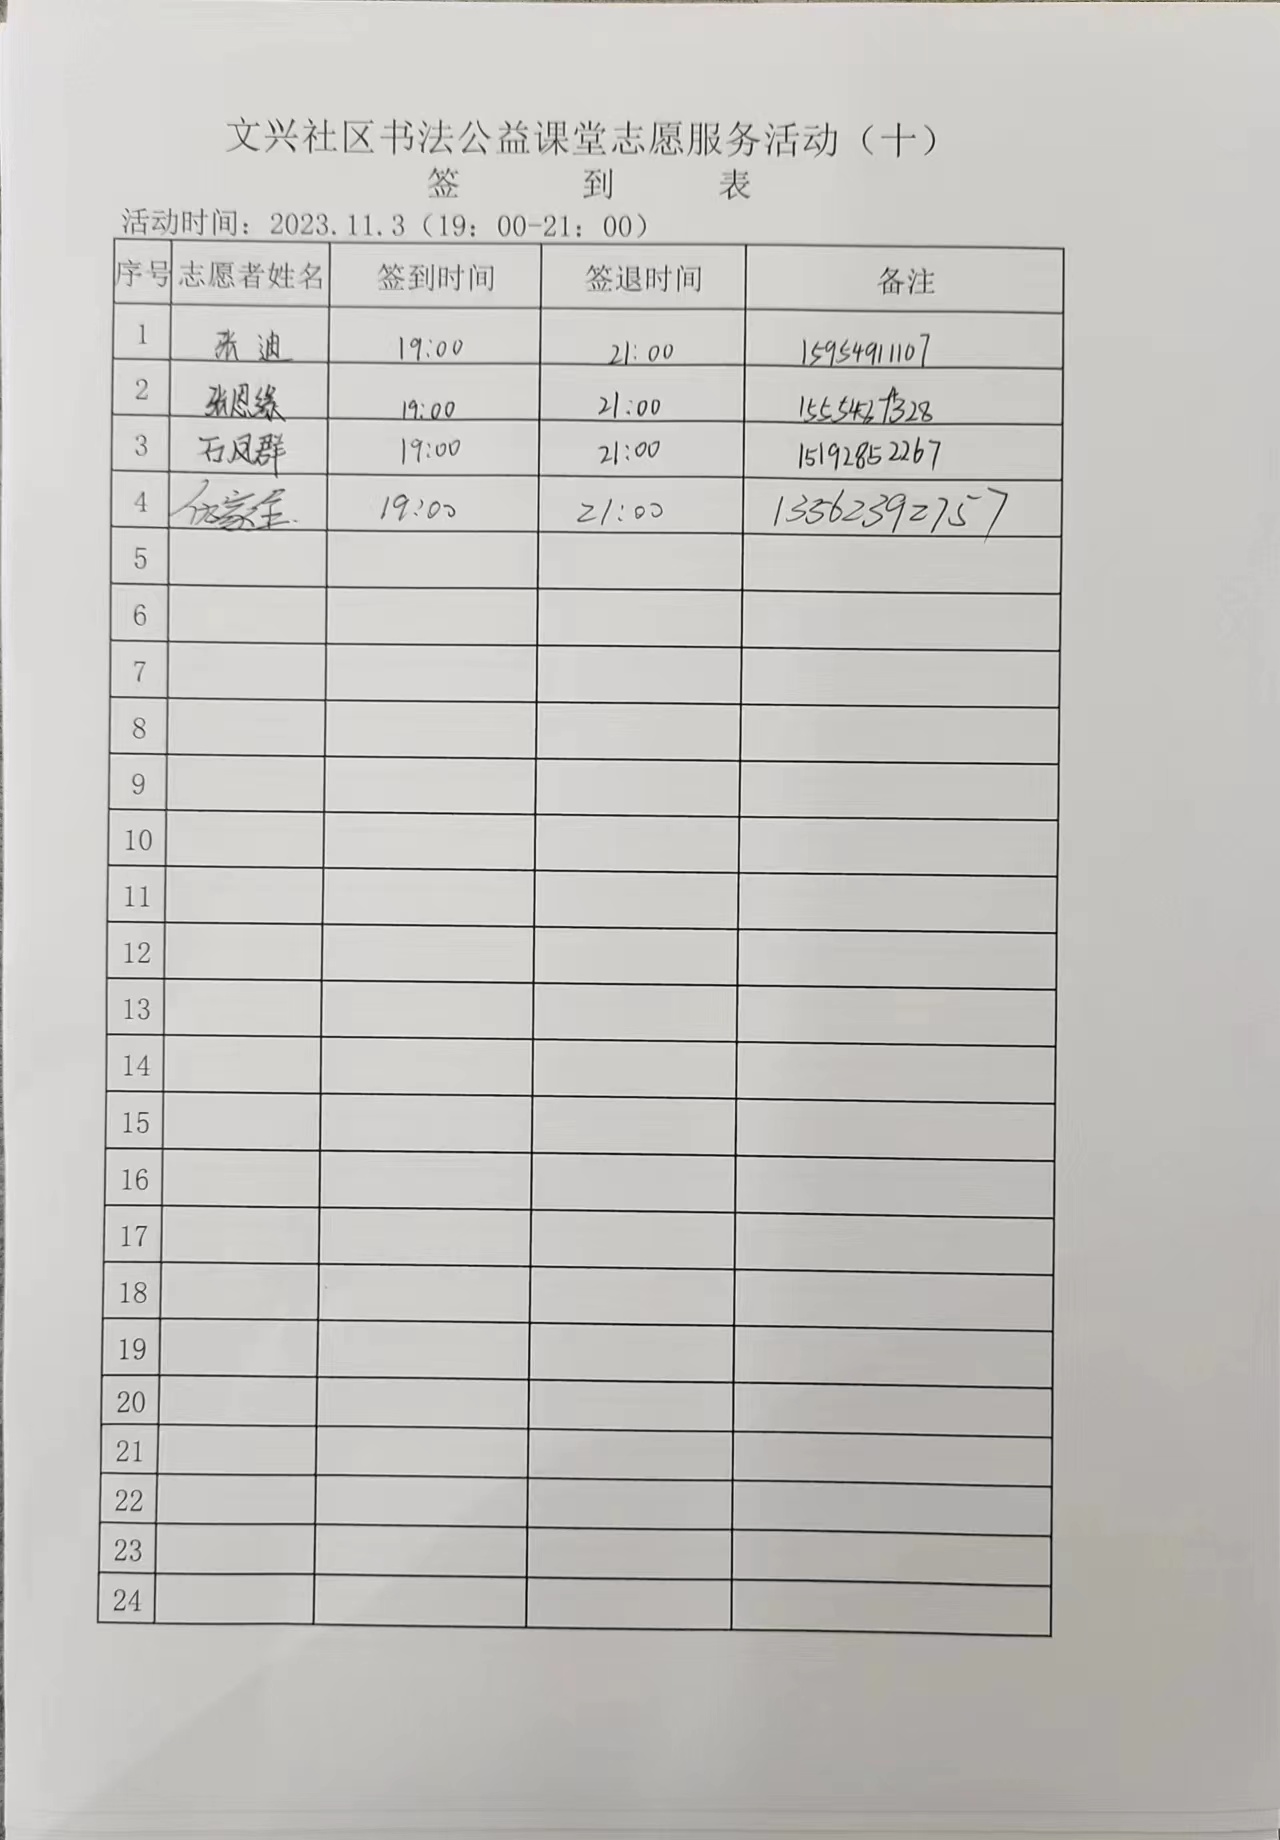 文兴社区书法公益课堂志愿服务活动（十）
签 到 表
活动时间：2023.11.3（19：00-21：00）
序号 志愿者姓名 签到时间 签退时间 备注
1 张迪 19:00 21:00 15954911107
2 张恩缘 19:00 21:00
3 石凤群 19:00 21:00 15192852267
4 19:00 21:00 13562392757
5
6
7
8
9
10
11
12
13
14
15
16
17
18
19
20
21
22
23
24